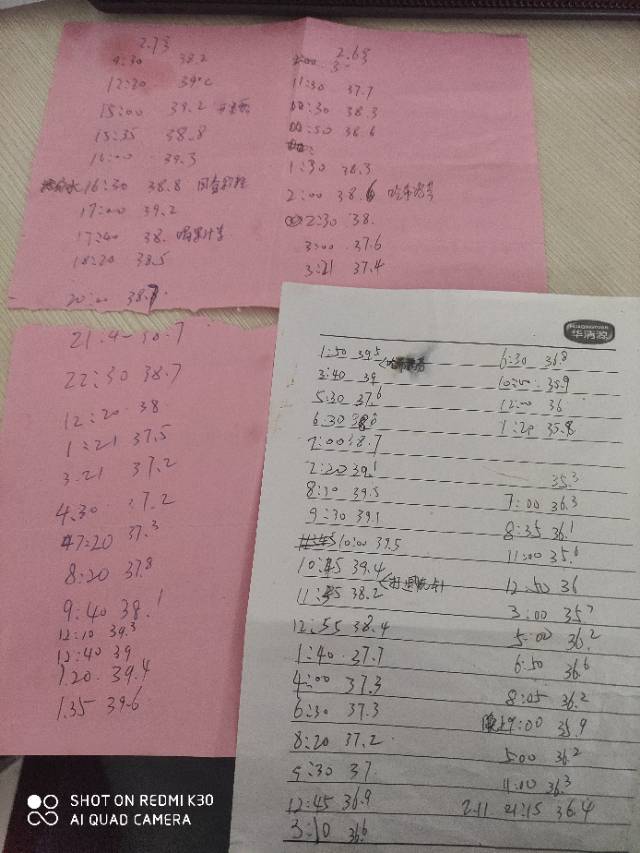 2.7号
9:30 38.2
12:30 39℃
15:00 39.2
15:35 38.8
16:00 39.3
16:30 38.8
17:00 39.2
17:40 38.
18:20 38.5
20:00 38.7
21:4 38.7
22:30 38.7
12:20 38
1:21 37.5
3.21 37.2
4.30 37.2
7:20 37.3
8:20 37.8
9:40 38.1
12:10 39.3
12:40 39
1.20 39.4
1.35 39.6
2.6号
11:30 37.7
00:30 38.3
00:50 38.6
1:30 38.3
2:00 38.6
2:30 38.
3:00 37.6
3:21 37.4
华清源
1:50 39.5
3:40 39
5:30 37.6
6.30
7:00 38.7
7:20 39.1
8:30 39.5
9:30 39.1
10:00 39.5
10:45 39.4
11:35 38.2
12:55 38.4
1:40 37.7
4:00 37.3
6:30 37.3
8:20 37.2
9:30 37
12:45 36.9
3:10 36.6
6:30 36.8
10:00 35.9
12:00 36
1:20 35.8
35.3
7:00 36.3
8:35 36.1
11:00 35.8
12:50 36
3:00 35.7
5:00 36.2
6:50 36.6
8:05 36.2
晚上9:00 35.9
5:00 36.2
11:00 36.3
2.11 21:15 36.4
SHOT ON REDMI K30
AI QUAD CAMERA